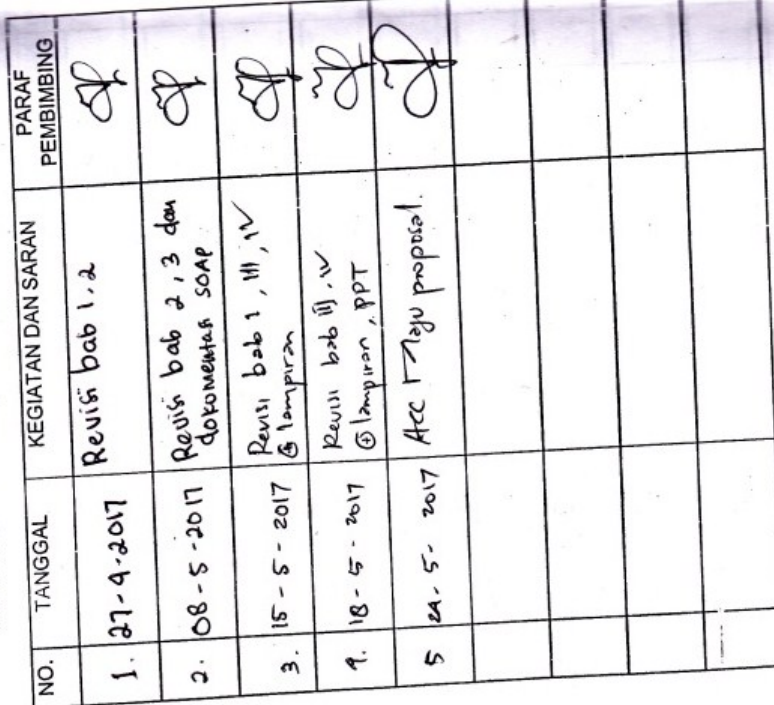 NO. TANGGAL KEGIATAN DAN SARAN PARAF PEMBIMBING
1. 27-4-2017 Revisi bab 1,2
2. 08-5-2017 Revisi bab 2,3 dan
dokumentasi SOAP
3. 15-5-2017 Revisi bab 1, III, IV
lampiran
4. 18-5-2017 Revisi bab III, IV
⊕ lampiran, PPT
5 24-5-2017 Acc maju proposal.